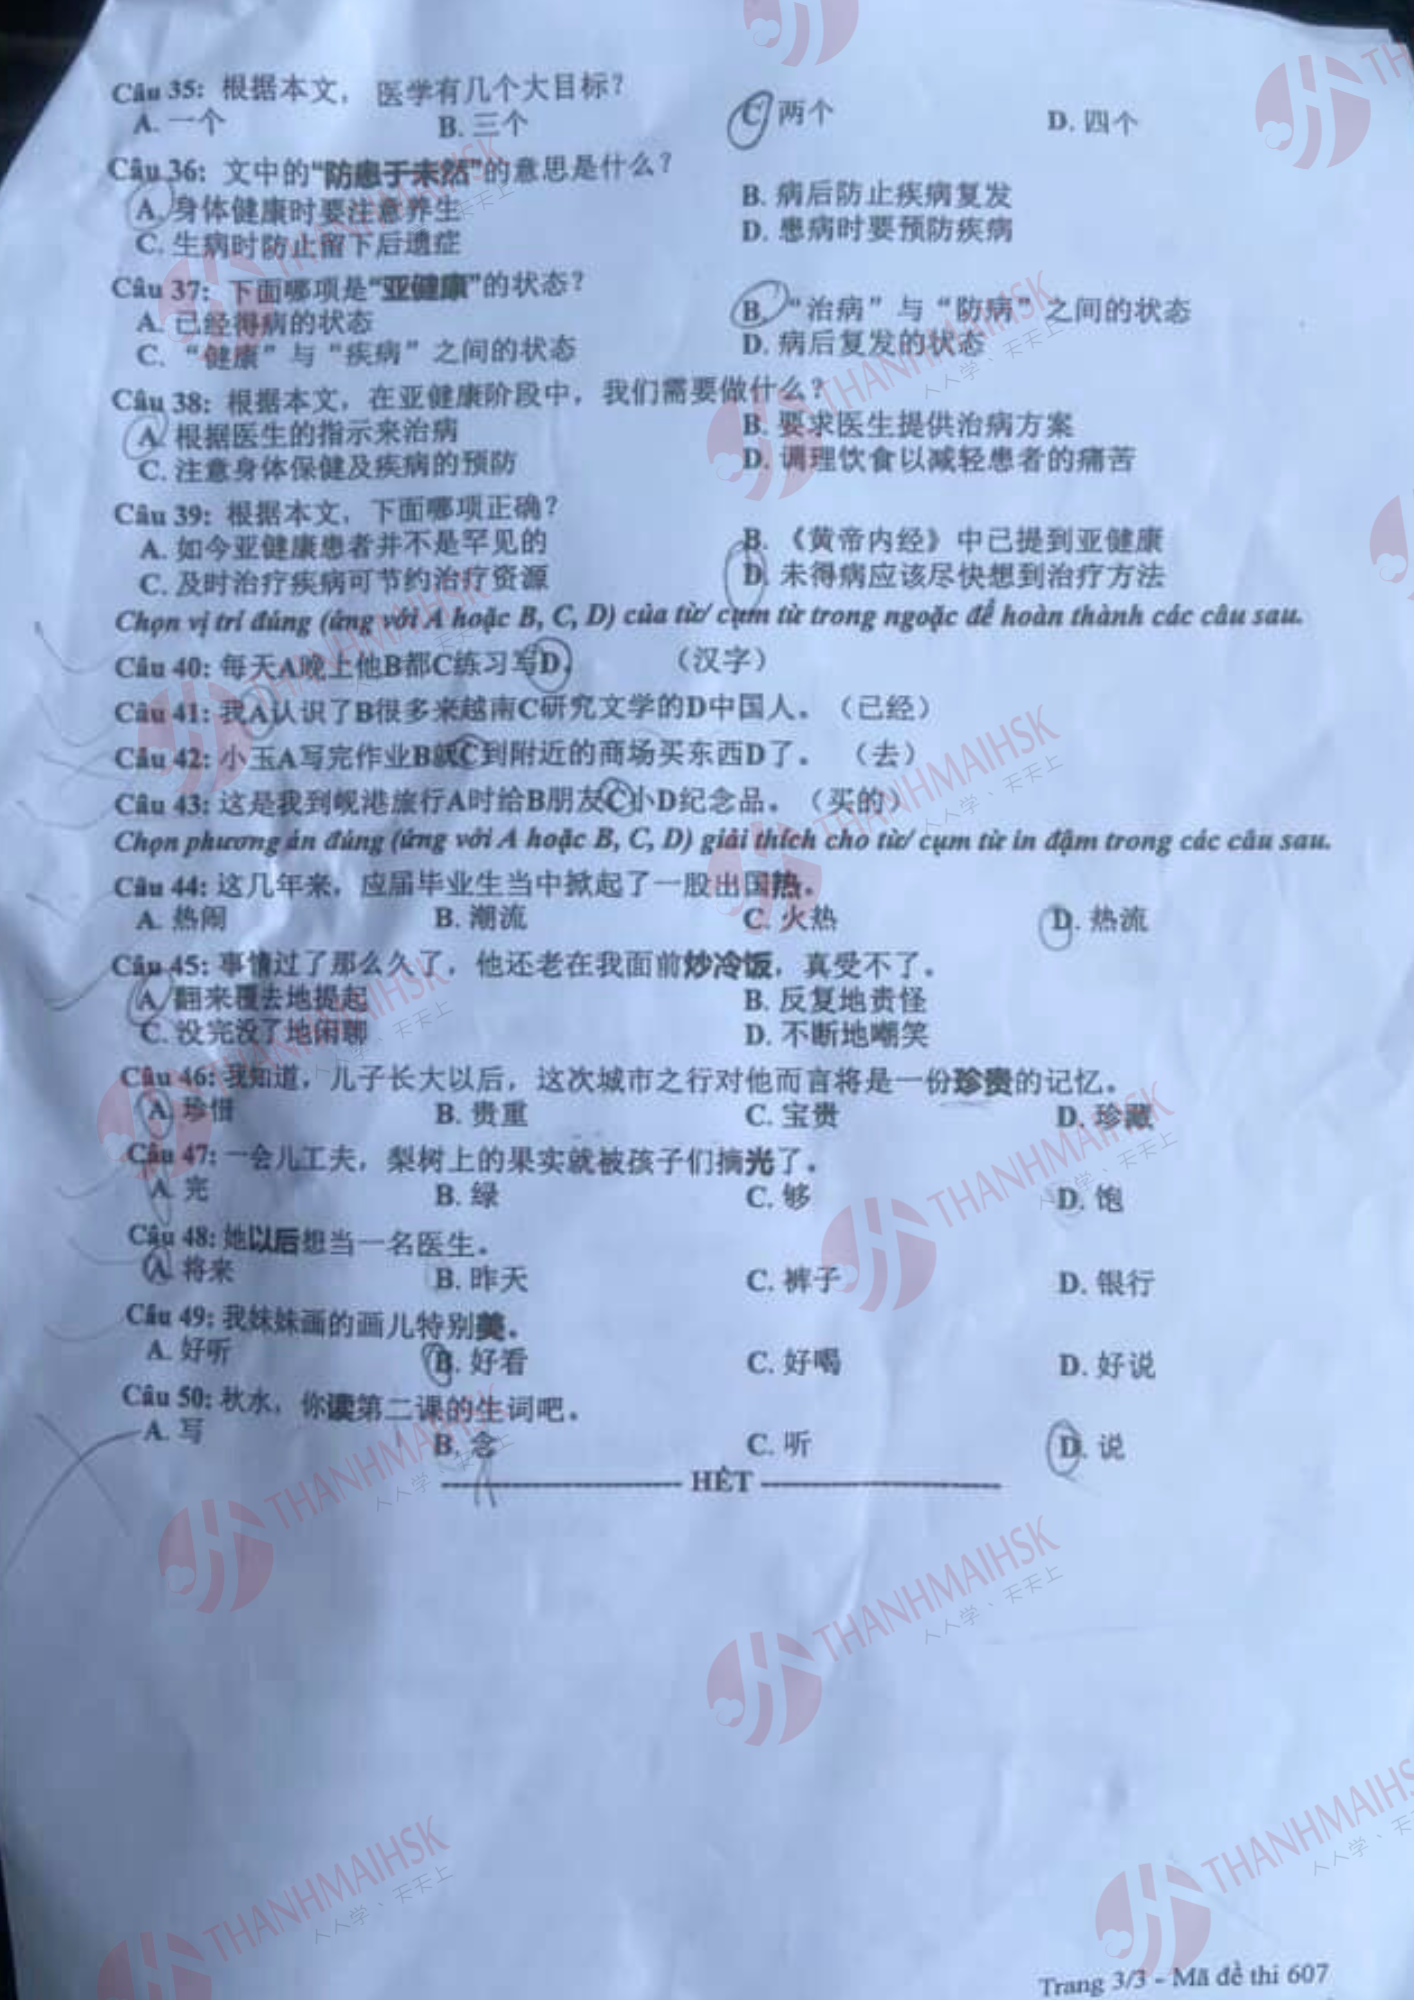 Câu 35: 根据本文，医学有几个大目标？
A. 一个 B. 三个 C. 两个 D. 四个
Câu 36: 文中的“防患于未然”的意思是什么？
A. 身体健康时要注意养生 B. 病后防止疾病复发
C. 生病时防止留下后遗症 D. 患病时要预防疾病
Câu 37: 下面哪项是“亚健康”的状态？
A. 已经得病的状态 B. “治病”与“防病”之间的状态
C. “健康”与“疾病”之间的状态 D. 病后复发的状态
Câu 38: 根据本文，在亚健康阶段中，我们需要做什么？
A. 根据医生的指示来治病 B. 要求医生提供治病方案
C. 注意身体保健及疾病的预防 D. 调理饮食以减轻患者的痛苦
Câu 39: 根据本文，下面哪项正确？
A. 如今亚健康患者并不是罕见的 B. 《黄帝内经》中已提到亚健康
C. 及时治疗疾病可节约治疗资源 D. 未得病应该尽快想到治疗方法
Chọn vị trí đúng (ứng với A hoặc B, C, D) của từ/ cụm từ trong ngoặc để hoàn thành các câu sau.
Câu 40: 每天A晚上他B都C练习写D。 （汉字）
Câu 41: 我A认识了B很多来越南C研究文学的D中国人。（已经）
Câu 42: 小玉A写完作业B就C到附近的商场买东西D了。 （去）
Câu 43: 这是我到岘港旅行A时给B朋友C小D纪念品。（买的）
Chọn phương án đúng (ứng với A hoặc B, C, D) giải thích cho từ/ cụm từ in đậm trong các câu sau.
Câu 44: 这几年来，应届毕业生当中掀起了一股出国热。
A. 热闹 B. 潮流 C. 火热 D. 热流
Câu 45: 事情过了那么久了，他还老在我面前炒冷饭，真受不了。
A. 翻来覆去地提起 B. 反复地责怪
C. 没完没了地闲聊 D. 不断地嘲笑
Câu 46: 我知道，儿子长大以后，这次城市之行对他而言将是一份珍贵的记忆。
A. 珍惜 B. 贵重 C. 宝贵 D. 珍藏
Câu 47: 一会儿工夫，梨树上的果实就被孩子们摘光了。
A. 完 B. 绿 C. 够 D. 饱
Câu 48: 她以后想当一名医生。
A. 将来 B. 昨天 C. 裤子 D. 银行
Câu 49: 我妹妹画的画儿特别美。
A. 好听 B. 好看 C. 好喝 D. 好说
Câu 50: 秋水，你读第二课的生词吧。
A. 写 B. 念 C. 听 D. 说
HẾT
Trang 3/3 - Mã đề thi 607
THANHMAIHSK
人人学、天天上